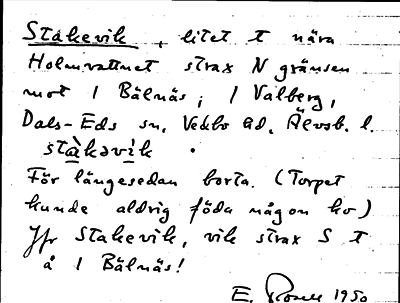 Stakevik, litet t nära
Holmvattnet strax N gränsen
mot 1 Bälnäs, 1 Valberg,
Dals-Eds sn, Vedbo hd, Älvsb. l.
stàkəvìk .
För längesedan borta. (Torpet
kunde aldrig föda någon ko)
Jfr Stakevik, vik strax S t
å 1 Bälnäs!
E. 1950